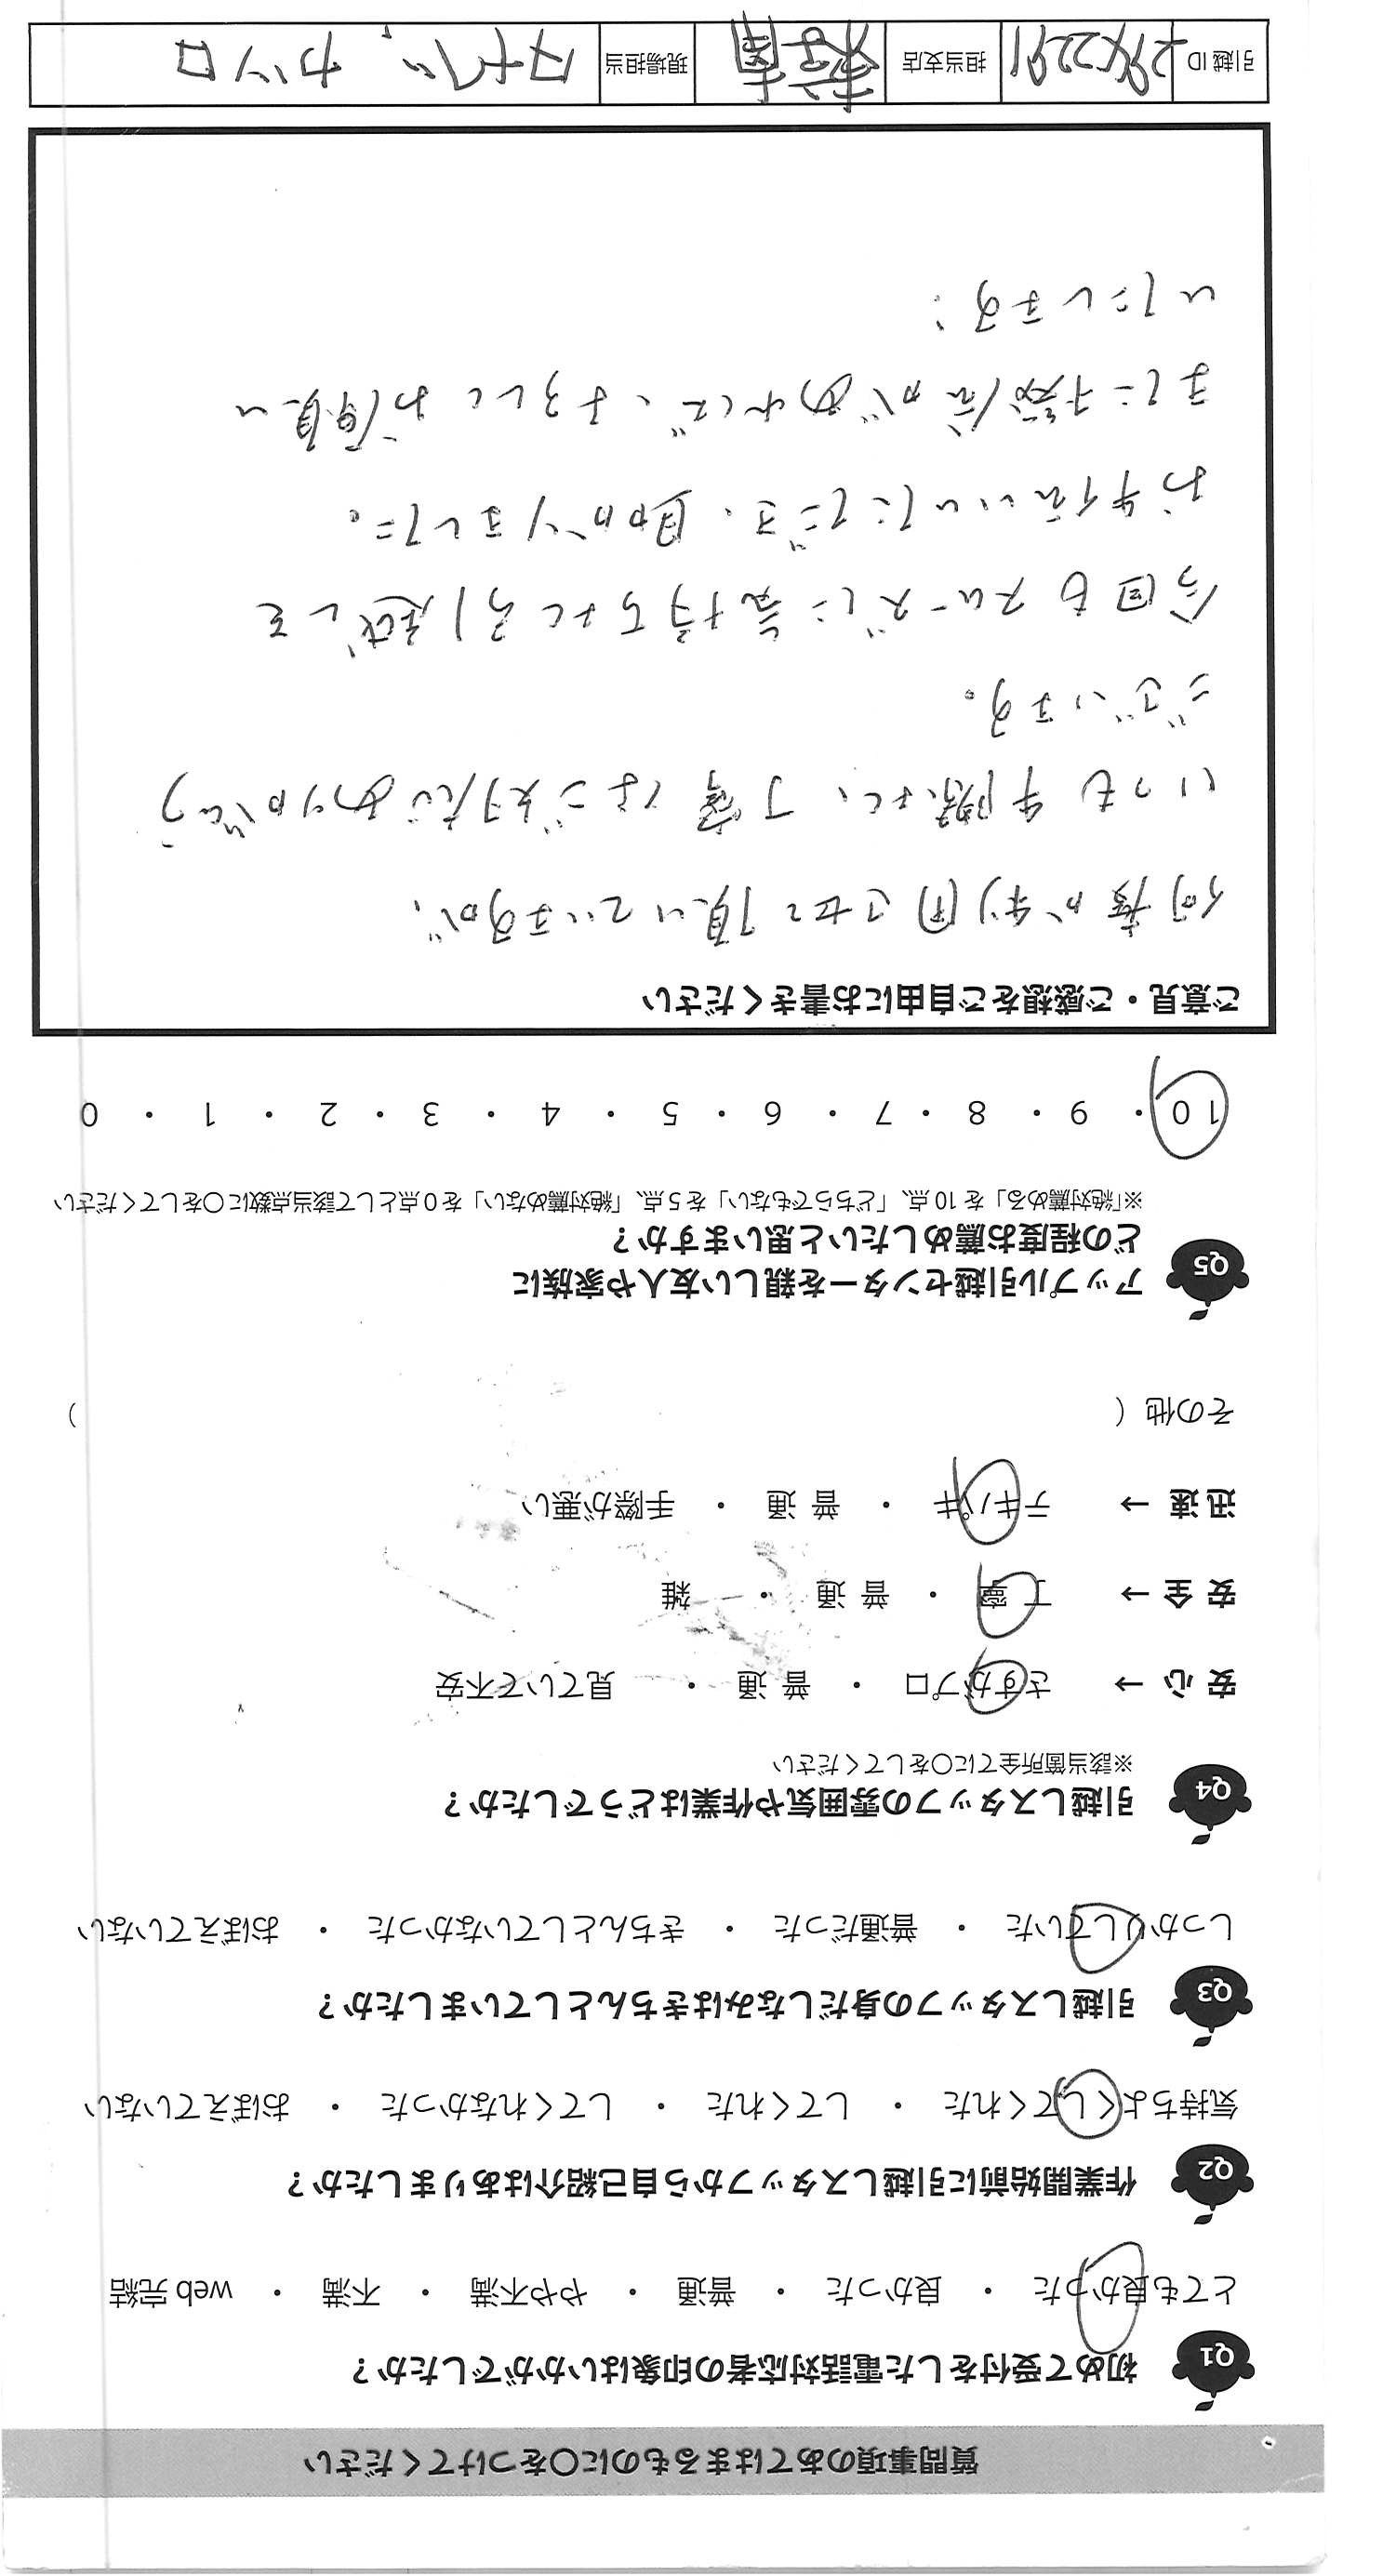 質問事項のあてはまるものに〇をつけてください
Q1 初めて受付をした電話対応者の印象はいかがでしたか？
とても良かった ・ 良かった ・ 普通 ・ やや不満 ・ 不満 ・ web 完結
Q2 作業開始前に引越しスタッフから自己紹介はありましたか？
気持ちよくしてくれた ・ してくれた ・ してくれなかった ・ おぼえていない
Q3 引越しスタッフの身だしなみはきちんとしていましたか？
しっかりしていた ・ 普通だった ・ きちんとしていなかった ・ おぼえていない
Q4 引越しスタッフの雰囲気や作業はどうでしたか？
※該当箇所全てに〇をしてください
安 心 → さすがプロ ・ 普 通 ・ 見ていて不安
安 全 → 丁 寧 ・ 普 通 ・ 雑
迅 速 → テキパキ ・ 普 通 ・ 手際が悪い
その他（ ）
Q5 アップル引越センターを親しい友人や家族に
どの程度お薦めしたいと思いますか？
※「絶対薦める」を 10 点、「どちらでもない」を 5 点、「絶対薦めない」を 0 点として該当点数に〇をしてください
10 ・ 9 ・ 8 ・ 7 ・ 6 ・ 5 ・ 4 ・ 3 ・ 2 ・ 1 ・ 0
ご意見・ご感想をご自由にお書きください
何度か利用させて頂いていますが、
いつも手際よく、丁寧なご対応ありがとう
ございます。
今回もスムーズに気持ちよく引越しを
お手伝いいただき、助かりました。
また機会があれば、よろしくお願い
いたします
引越 ID 担当支店 現場担当 タナベ、カツロ